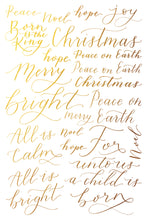 Peace Noel hope Joy
Born is the King Christmas
hope Peace on Earth
Merry Peace on Earth
Christmas
bright Peace on
merry Earth
All is noel For
Calm hope Noel
unto us
All is a child is
bright born